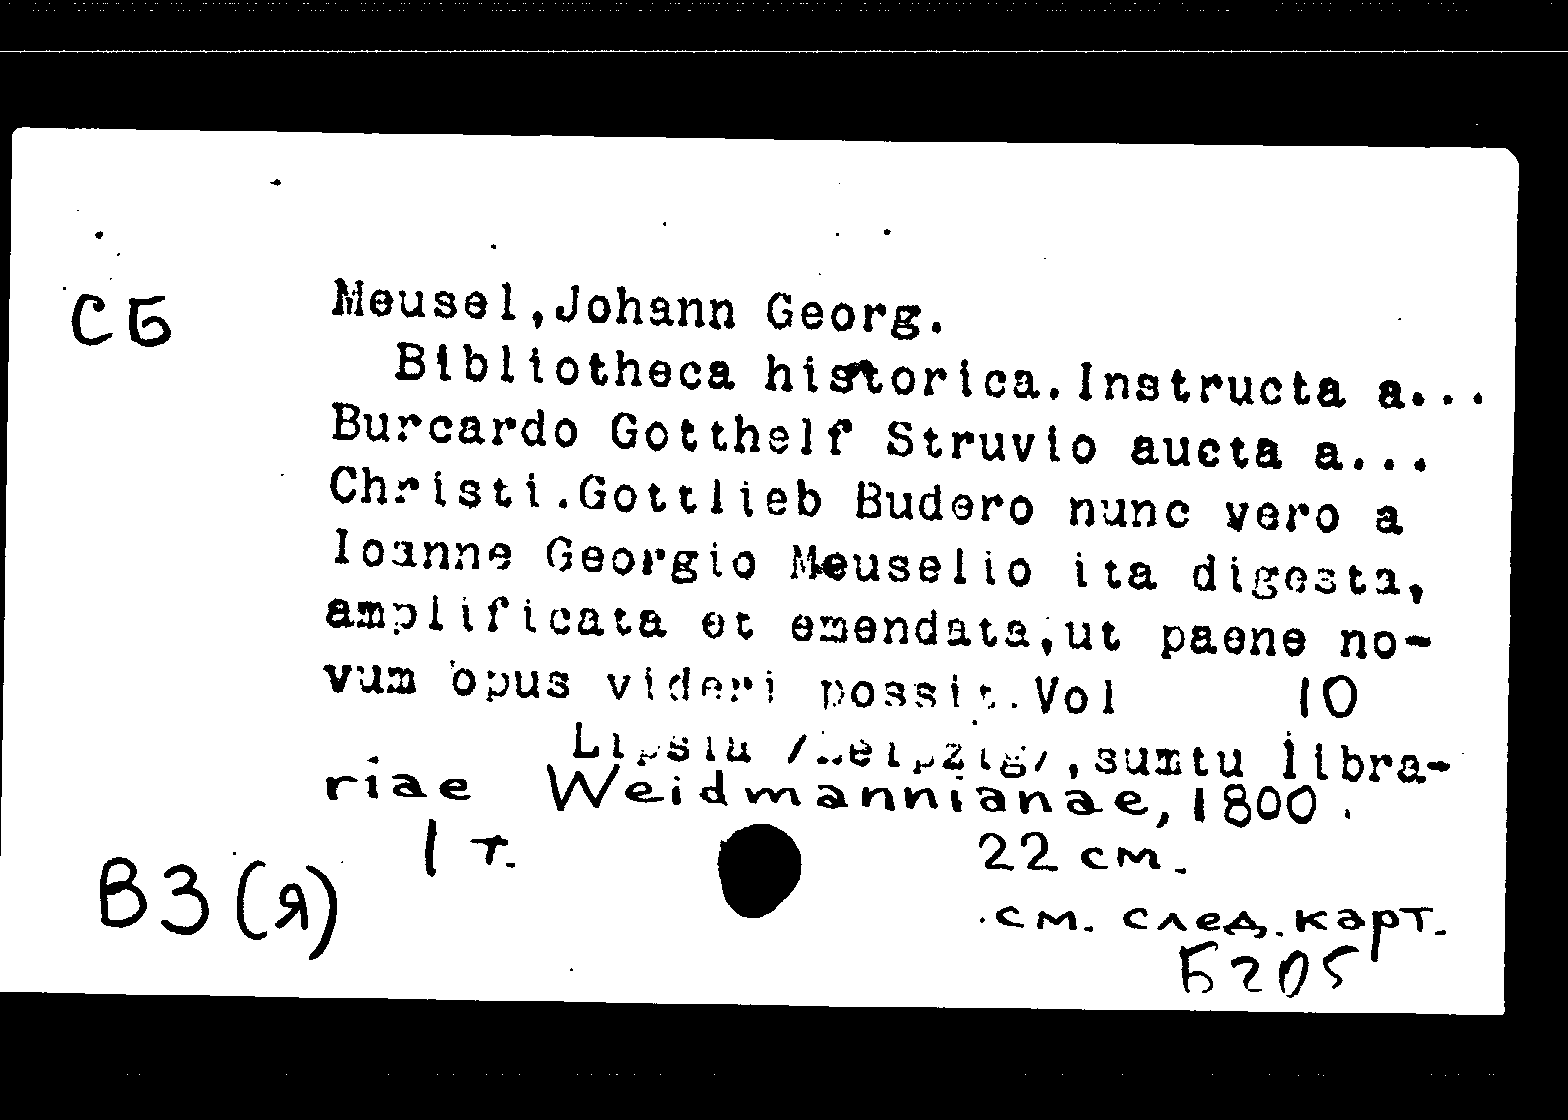 СБ
Meusel,Johann Georg.
Bibliotheca historica.Instructa a...
Burcardo Gotthelf Struvio aucta a...
Christi.Gottlieb Budero nunc vero a
Ioanne Georgio Meuselio ita digesta,
amplificata et emendata,ut paene no-
vum opus videri possit.Vol 10
Lipsiu /Leipzig/,sumtu libra-
riae Weidmannianae, 1800.
1 т. 22 см.
ВЗ(я)
см. след. карт.
Б205